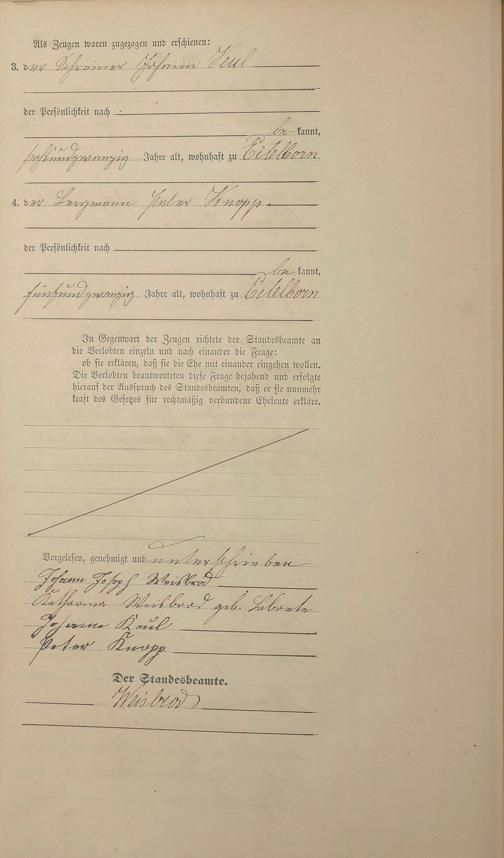 Als Zeugen waren zugezogen und erschienen:
3. der Schreiner Johann Keul
der Persönlichkeit nach
be kannt,
sechsundzwanzig Jahre alt, wohnhaft zu Eitelborn
4. der Bergmann Peter Knopp
der Persönlichkeit nach
be kannt,
fünfundzwanzig Jahre alt, wohnhaft zu Eitelborn
In Gegenwart der Zeugen richtete der Standesbeamte an
die Verlobten einzeln und nach einander die Frage:
ob sie erklären, daß sie die Ehe mit einander eingehen wollen.
Die Verlobten beantworteten diese Frage bejahend und erfolgte
hierauf der Ausspruch des Standesbeamten, daß er sie nunmehr
kraft des Gesetzes für rechtmäßig verbundene Eheleute erkläre.
Vorgelesen, genehmigt und unterschrieben
Johann Joseph Weisbrod
Katharina Weisbrod geb.
Johann Keul
Peter Knopp
Der Standesbeamte.
Weisbrod